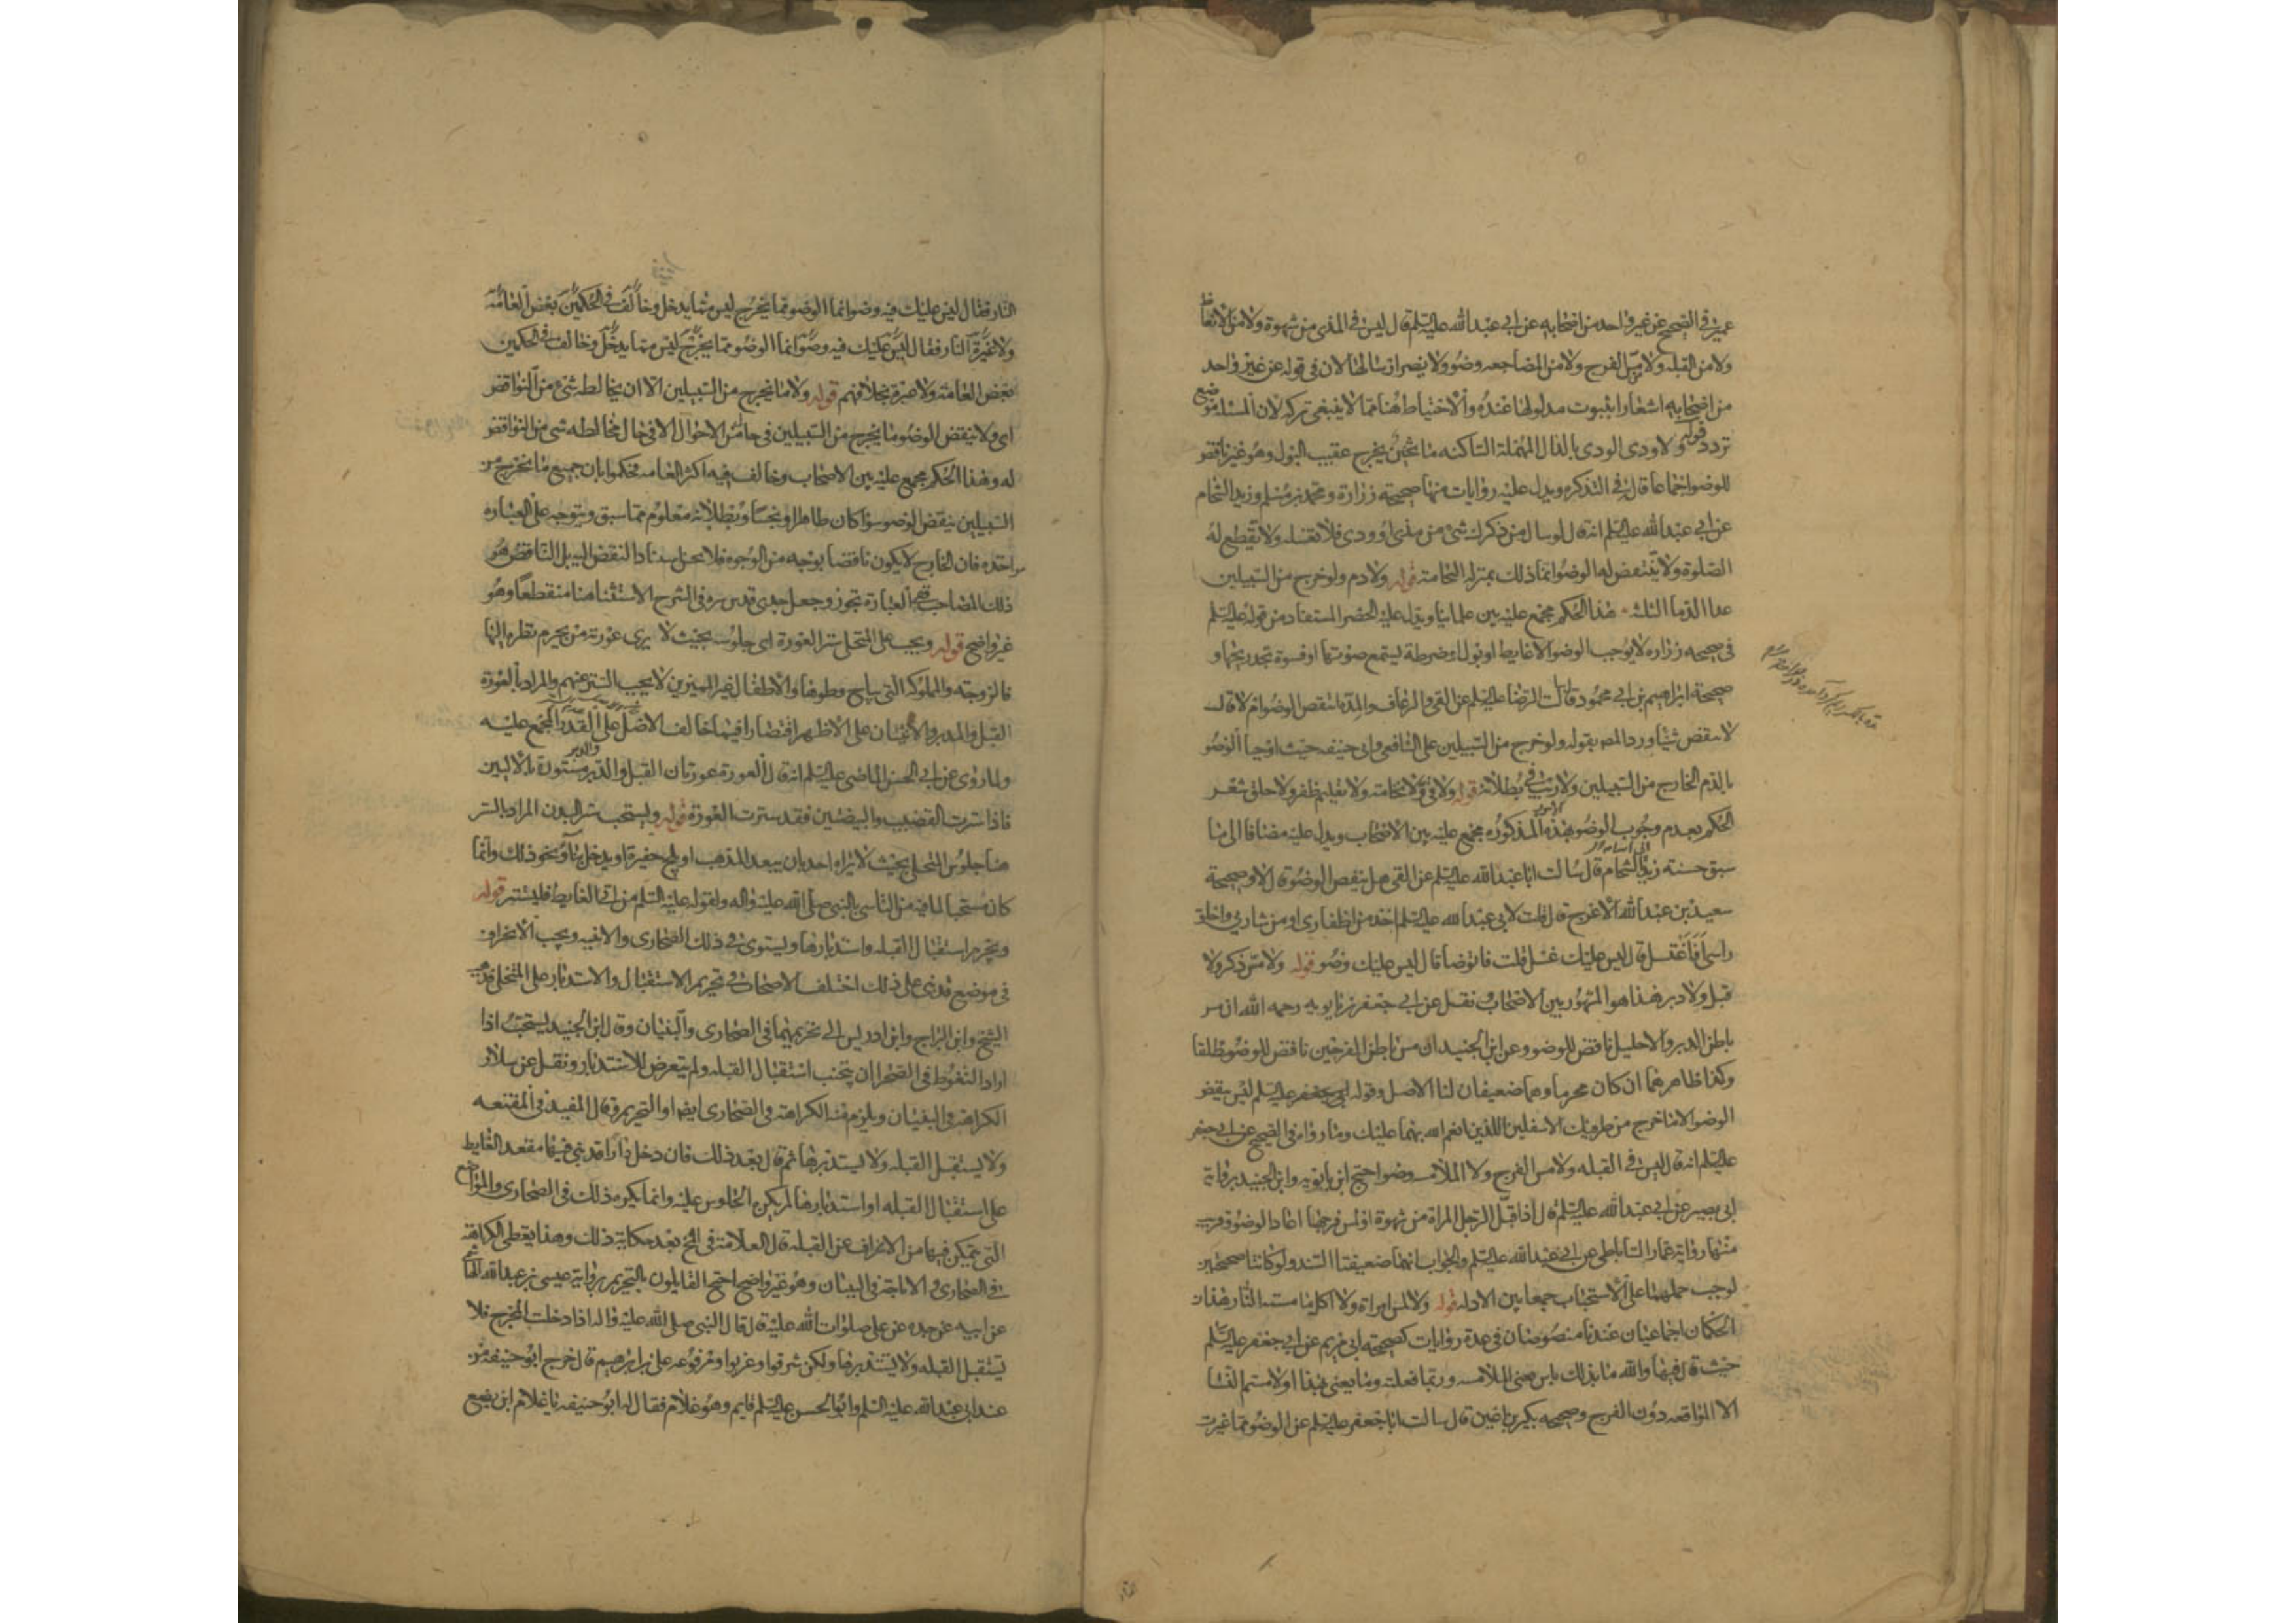 عمير في الصحيح عن غير واحد من اصحابه عن ابي عبد الله عليه السلم قال ليس في المذي من شهوة ولا من الانعاظ
ولا من القبله ولا مس الفرج ولا من المضاجعه وضو ولا يضر ارسالها لان في قوله عن غير واحد
من اصحابه اشعارا بثبوت مدلولها عنده والاحتياط هنا مما لا ينبغي تركه لان المسئله موضع
تردد قوله ولا ودي الودي بالدال المهملة الساكنه ماء ثخين يخرج عقيب البول وهو غير ناقض
للوضو اجماعا قال في التذكره ويدل عليه روايات منها صحيحة زرارة ومحمد بن مسلم وزيد الشحام
عن ابي عبد الله عليه السلم انه قال لو سال من ذكرك شئ من مذي او ودي فلا تغسله ولا تقطع له
الصلوة ولا ينتقض له الوضو انما ذلك بمنزلة النخامة قوله ولا دم ولو خرج من السبيلين
عدا الدما الثلثه هذا الحكم مجمع عليه بين علمائنا ويدل عليه الحصر المستفاد من قوله عليه السلم
في صحيحه زراره لا يوجب الوضو الا غايط او بول او ضرطة يسمع صوتها او فسوة تجد ريحها و
صحيحة ابراهيم بن ابي محمود قال سالت الرضا عليه السلم عن القي والرعاف والمدة اتنقض الوضو ام لا قال
لا تنقض شيئا ورد المصـ بقوله ولو خرج من السبيلين على الشافعي وابي حنيفه حيث اوجبا الوضو
بالدم الخارج من السبيلين ولا ريب في بطلانه قوله ولا قئ ولا نخامة ولا تقليم ظفر ولا حلق شعر
الحكم بعدم وجوب الوضو بهذه الامور المذكوره مجمع عليه بين الاصحاب ويدل عليه مضافا الى ما
سبق حسنة زيد الشحام قال سالت ابا عبد الله عليه السلم عن القي هل ينقض الوضو قال لا وصحيحة
سعيد بن عبد الله الاعرج قال قلت لابي عبد الله عليه السلم اخذ من اظفاري او من شاربي واحلق
راسي افاغتسل قال ليس عليك غسل قلت فاتوضا قال ليس عليك وضو قوله ولا مس ذكر ولا
قبل ولا دبر هذا هو المشهور بين الاصحاب ونقل عن ابي جعفر بن بابويه رحمه الله ان مس
باطن الدبر والاحليل ناقض للوضو وعن ابن الجنيد ان مس باطن الفرجين ناقض للوضو مطلقا
وكذا ظاهرهما ان كان محرما وهما ضعيفان لنا الاصل وقوله ابي جعفر عليه السلم ليس ينقض
الوضو الا ما خرج من طرفيك الاسفلين اللذين انعم الله بهما عليك وما رواه في الصحيح عن ابي جعفر
عليه السلم انه قال ليس في القبله ولا مس الفرج ولا الملامسه وضو احتج ابن بابويه وابن الجنيد برواية
ابي بصير عن ابي عبد الله عليه السلم قال اذا قبل الرجل المراة من شهوة او لمس فرجها اعاد الوضو وقريب
منها رواية عمار الساباطي عن ابي عبد الله عليه السلم والجواب انهما ضعيفتا السند ولو كانتا صحيحتين
لوجب حملهما على الاستحباب جمعا بين الادله قوله ولا لمس امراة ولا اكل ما مسته النار هذان
الحكمان اجماعيان عندنا منصوصان في عدة روايات كصحيحة ابي مريم عن ابي جعفر عليه السلم
حيث قال فيها والله ما بذلك باس يعني الملامسه وربما فعلته وما يعني بهذا او لامستم النسا
الا المواقعه دون الفرج وصحيحه بكير بن اعين قال سالت ابا جعفر عليه السلم عن الوضو مما غيرت
النار فقال ليس عليك فيه وضو انما الوضو مما يخرج ليس مما يدخل وخالف في الحكمين بعض العامة
ولا غيرة النار فقال ليس عليك فيه وضو انما الوضو مما يخرج ليس مما يدخل وخالف في الحكمين
بعض العامة ولا عبرة بخلافهم قوله ولا ما يخرج من السبيلين الا ان يخالطه شئ من النواقض
اي ولا ينقض الوضو ما يخرج من السبيلين في حال من الاحوال الا في حال مخالطه شي من النواقض
له وهذا الحكم مجمع عليه بين الاصحاب وخالف فيه اكثر العامه فحكموا بان جميع ما يخرج من
السبيلين ينقض الوضو سوا كان طاهرا او نجسا وبطلانه معلوم مما سبق ويتوجه على العباره
مواخذه فان الخارج لا يكون ناقضا بوجه من الوجوه فلا يحسن اسناد النقض اليه بل الناقض هو
ذلك المصاحب ففي العبارة تجوز وجعل جدي قدس سره في الشرح الاستثنا هنا منقطعا وهو
غير واضح قوله ويجب على المتخلي ستر العورة اي جلوسه بحيث لا يرى عورته من يحرم نظره اليها
فالزوجة والمملوكة التي يباح وطوها والاطفال غير المميزين لا يجب الستر عنهم والمراد بالعورة
القبل والدبر والانثيان على الاظهر اقتصارا فيما خالف الاصل على القدر المجمع عليه
ولما روي عن ابي الحسن الماضي عليه السلم انه قال العورة عورتان القبل والدبر والدبر مستورة بالاليين
فاذا سترت القضيب والبيضتين فقد سترت العورة قوله ويستحب ستر البدن المراد بالستر
هنا جلوس المتخلي بحيث لا يراه احد بان يبعد المذهب او يلج حفيرة او يدخل بناء ونحو ذلك وانما
كان مستحبا لما فيه من التاسي بالنبي صلى الله عليه واله ولقوله عليه السلم من اتى الغايط فليستتر قوله
ويحرم استقبال القبله واستدبارها ويستوي في ذلك الصحاري والابنيه ويجب الانحراف
في موضع قد بني على ذلك اختلف الاصحاب في تحريم الاستقبال والاستدبار على المتخلي فذهب
الشيخ وابن البراج وابن ادريس الى تحريمهما في الصحاري والبنيان وقال ابن الجنيد يستحب اذا
اراد التغوط في الصحرا ان يتجنب استقبال القبله ولم يتعرض للاستدبار ونقل عن سلار
الكراهة في البنيان ويلزم منه الكراهة في الصحاري ايضا او التحريم وقال المفيد في المقنعه
ولا يستقبل القبله ولا يستدبرها ثم قال بعد ذلك فان دخل دارا قد بني فيها مقعد الغايط
على استقبال القبله او استدبارها لم يكره الجلوس عليه وانما يكره ذلك في الصحاري والمواضع
التي يتمكن فيها من الانحراف عن القبله قال العلامة في المخ بعد حكاية ذلك وهذا يعطى الكراهة
في الصحاري والاباحة في البنيان وهو غير واضح احتج القايلون بالتحريم برواية عيسى بن عبد الله الهاشمي
عن ابيه عن جده عن علي صلوات الله عليه قال قال النبي صلى الله عليه واله اذا دخلت المخرج فلا
تستقبل القبله ولا تستدبرها ولكن شرقوا وغربوا ومرفوعه علي بن ابراهيم قال خرج ابو حنيفه من
عند ابي عبد الله عليه السلم وابو الحسن عليه السلم قايم وهو غلام فقال له ابو حنيفه يا غلام اين يضع